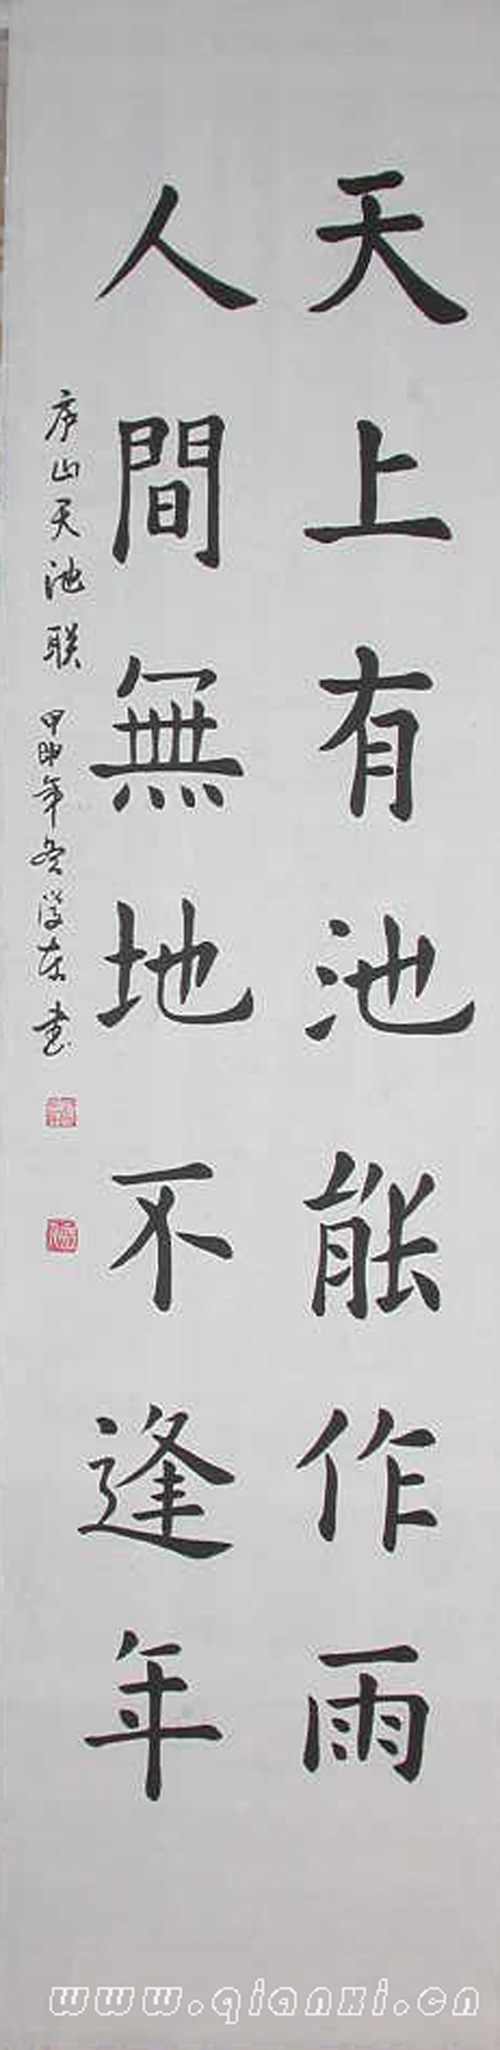 天上有池能作雨
人間無地不逢年
庐山天池联 甲申年冬 东书
www.qianxi.cn